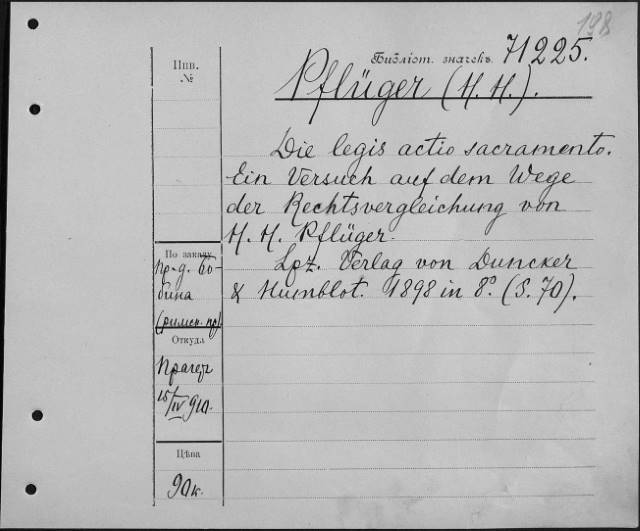 198
Инв.
№
Библіот. значекъ 71225.
Pflüger (H. H.).
Die legis actio sacramento.
Ein Versuch auf dem Wege
der Rechtsvergleichung von
H. H. Pflüger.
Lpz. Verlag von Duncker
& Humblot. 1898 in 8º. (S. 70).
По заказу
пр-д. Бо-
бина
(римск. пр)
Откуда
Прагеръ
15/IV 910.
Цѣна
90 к.